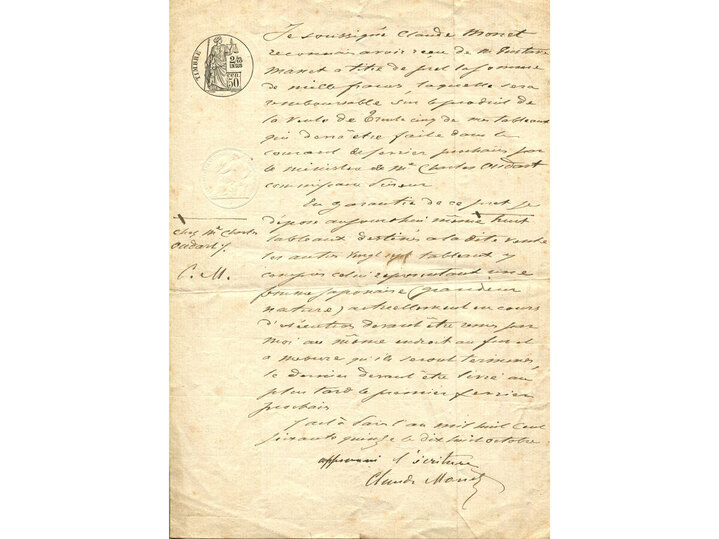 TIMBRE
2/10
EN SUS
CENT.
50
Je soussigné Claude Monet
reconnais avoir reçu de M. Gustave
Manet a titre de prêt la somme
de mille francs, laquelle sera
remboursable sur le produit de
la vente de Trente cinq de mes tableaux
qui devra être faite dans le
courant de fevrier prochain par
le ministère de Me Charles Oudart
commissaire Priseur
En garantie de ce pret je
dépose aujourd'hui même huit
tableaux destinés a la dite vente
les autres vingt sept tableaux y
compris celui representant une
femme japonaise (grandeur
nature) actuellement en cours
d'exécution devant être remis par
moi au même endroit au fur et
a mesure qu'ils seront terminés
le dernier devant être livré au
plus tard le premier fevrier
prochain
Fait à Paris l'an mil huit cent
soixante quinze le dix huit octobre
approuvé l'écriture
Claude Monet
chez Me Charles
Oudart
C. M.